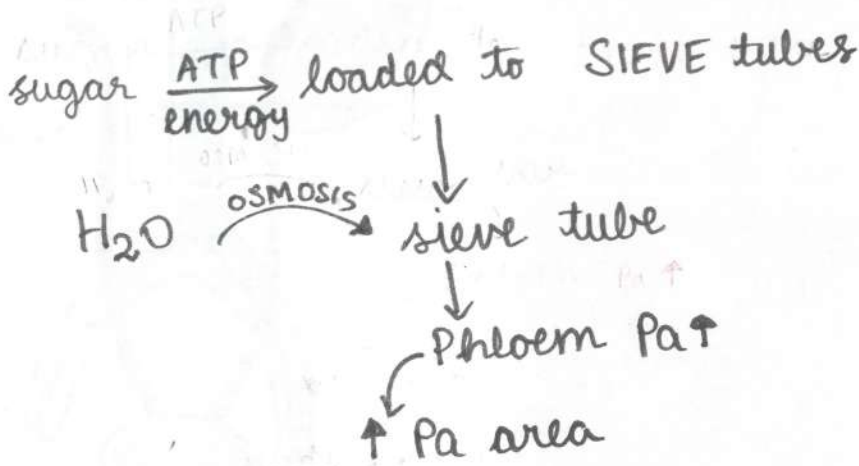 sugar ATP energy → loaded to SIEVE tubes
↓
H₂O OSMOSIS → sieve tube
↓
Phloem Pa↑
↑ Pa area